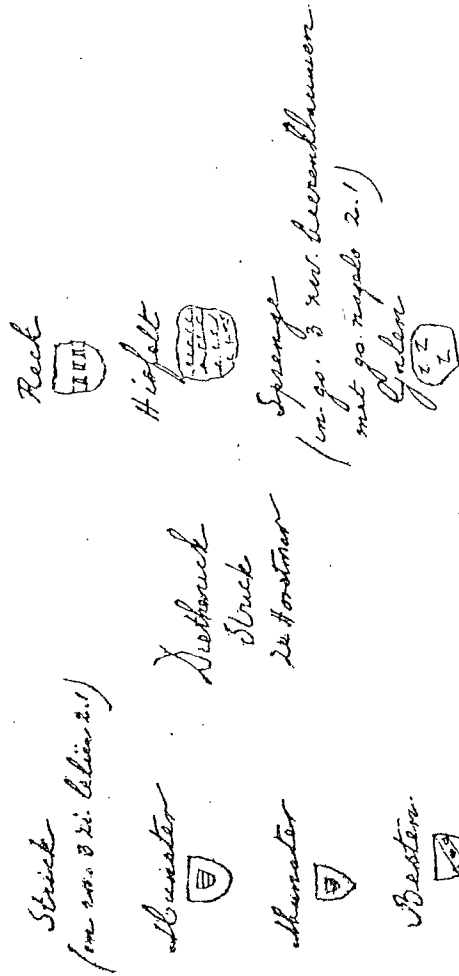 Strick
(in zw. 3 zi. leliën 2.1)
Munster
Munster
Besten
Diethenrick
Strick
zu Horstmar
Reck
Hisfelt
Sprenge
(in go. 3 zw. beerenklauwen
met go. nagels 2.1)
Galen